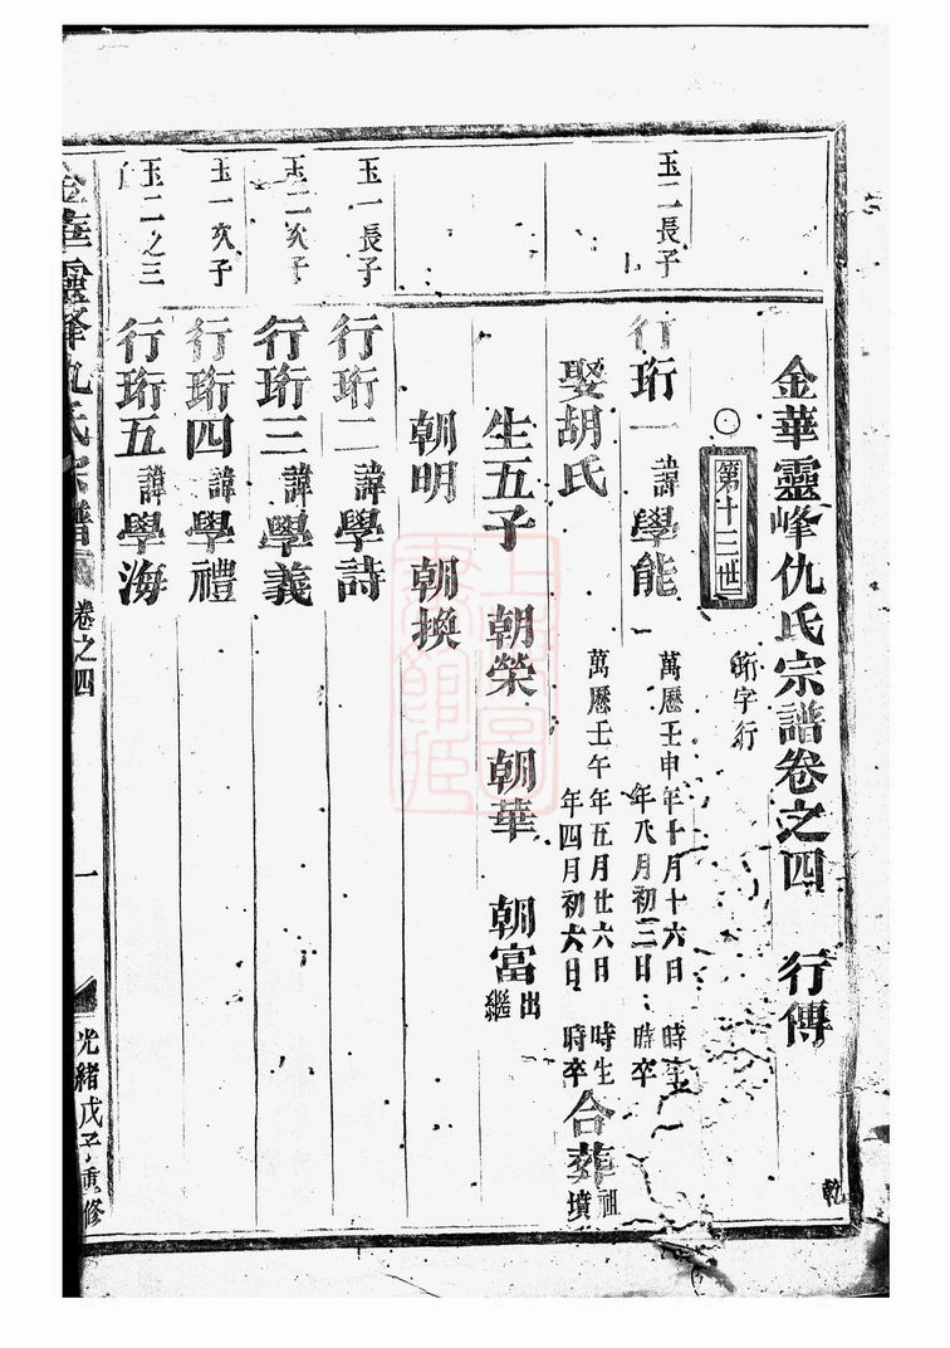 金華靈峰仇氏宗譜卷之四　行傳
乾
○第十三世　珩字行
玉二長子
行珩一　諱學能　萬曆壬申年十月十六日　時生
年八月初三日　時卒
娶胡氏　萬曆壬午年五月廿六日　時生
年四月初六日　時卒　合葬祖墳
生五子　朝榮　朝華　朝富出繼
朝明　朝換
玉一長子
行珩二　諱學詩
玉二次子
行珩三　諱學義
玉一次子
行珩四　諱學禮
玉二之三子
行珩五　諱學海
金華靈峰仇氏宗譜　卷之四　一　光緒戊子重修